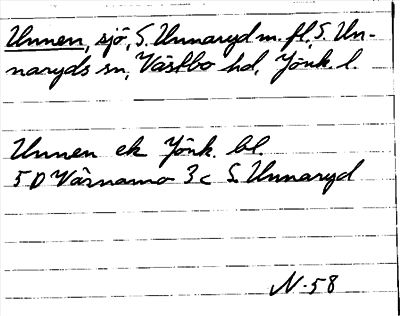 Unnen, sjö, S. Unnaryd m. fl., S. Un-
naryds sn, Västbo hd, Jönk. l.
Unnen ek Jönk. bl.
5 D Värnamo 3c S. Unnaryd
N-58